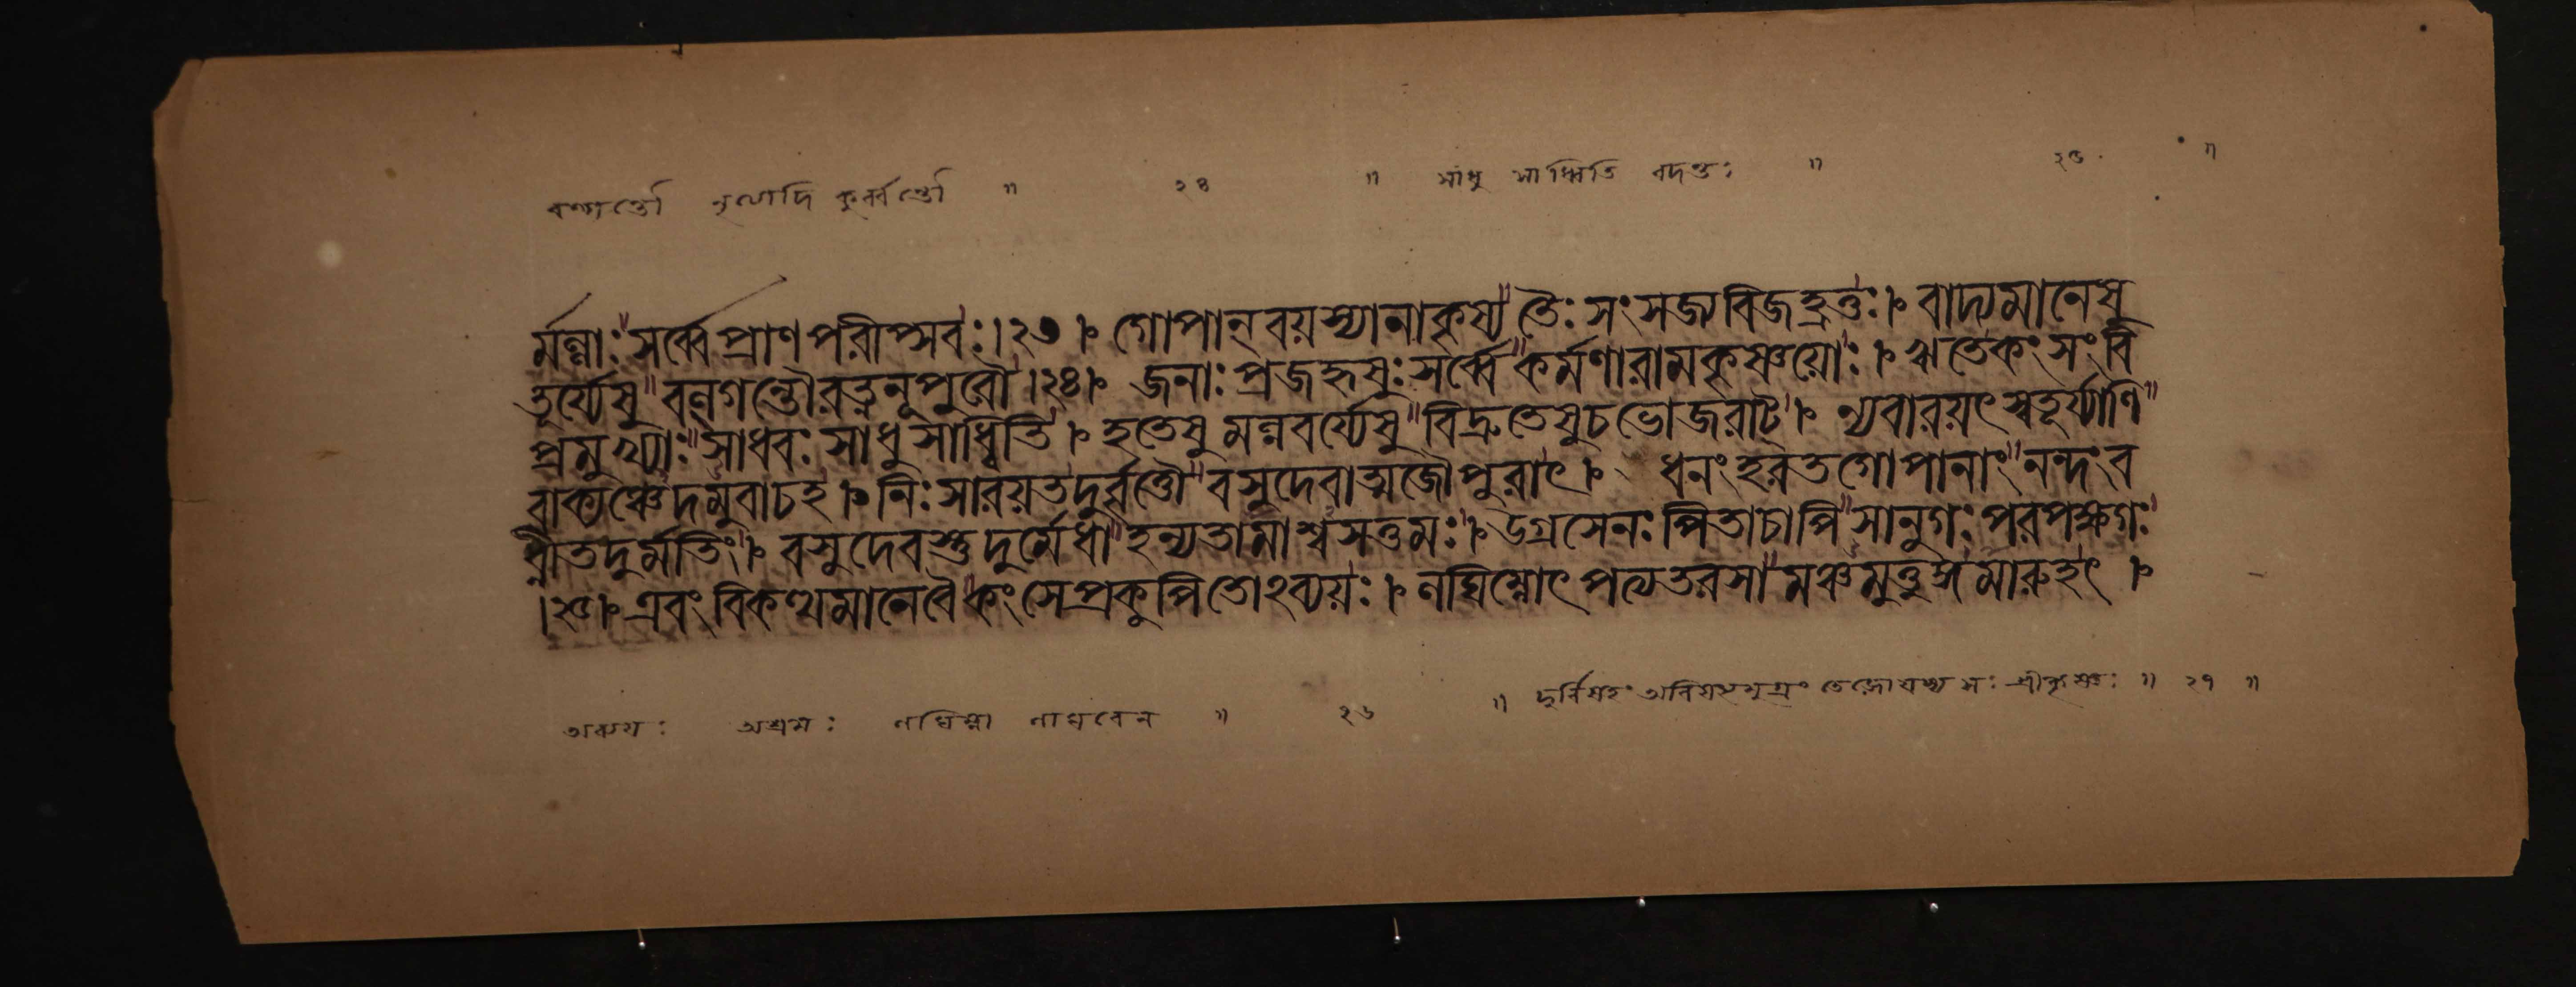 বল্গন্তৌ নৃত্যাদি কুর্ব্বন্তৌ ॥ ২৪ ॥ সাধু সাধ্বিতি বদন্তঃ ॥ ২৫ ॥
র্মল্লাঃ॥সর্ব্বে প্রাণপরীপ্সবঃ।২৩। গোপান্ বয়স্যানাকৃষ্য॥তৈঃ সংসজ্য বিজহ্রতুঃ। বাদ্যমানেষু
তূর্য্যেষু॥বল্গন্তৌ রত্ননূপুরৌ।২৪। জনাঃ প্রজহৃষুঃ সর্ব্বে॥কর্মণা রামকৃষ্ণয়োঃ। ঋতে কংসং বি
প্রমুখ্যাঃ॥সাধবঃ সাধু সাধ্বিতি। হতেষু মল্লবর্য্যেষু॥বিদ্রুতেষু চ ভোজরাট্। ন্যবারয়ৎ স্বতূর্য্যাণি॥
বাক্যঞ্চেদমুবাচ হ। নিঃসারয়ত দুর্বৃত্তৌ॥বসুদেবাত্মজৌ পুরাৎ। ধনং হরত গোপানাং॥নন্দং ব
ধ্নীত দুর্মতিং। বসুদেবস্তু দুর্মেধা॥হন্যতামাশ্বসত্তমঃ। উগ্রসেনঃ পিতা চাপি॥সানুগঃ পরপক্ষগঃ
।২৫। এবং বিকত্থমানে বৈ॥কংসে প্রকুপিতোঽব্যয়ঃ। লঘিম্নোৎপত্য তরসা॥মঞ্চমুত্তুঙ্গমারুহৎ।
অব্যয়ঃ অশ্রমঃ লঘিম্না লাঘবেন ॥ ২৬ ॥ দুর্বিষহঃ শ্রীকৃষ্ণঃ ॥ ২৭ ॥